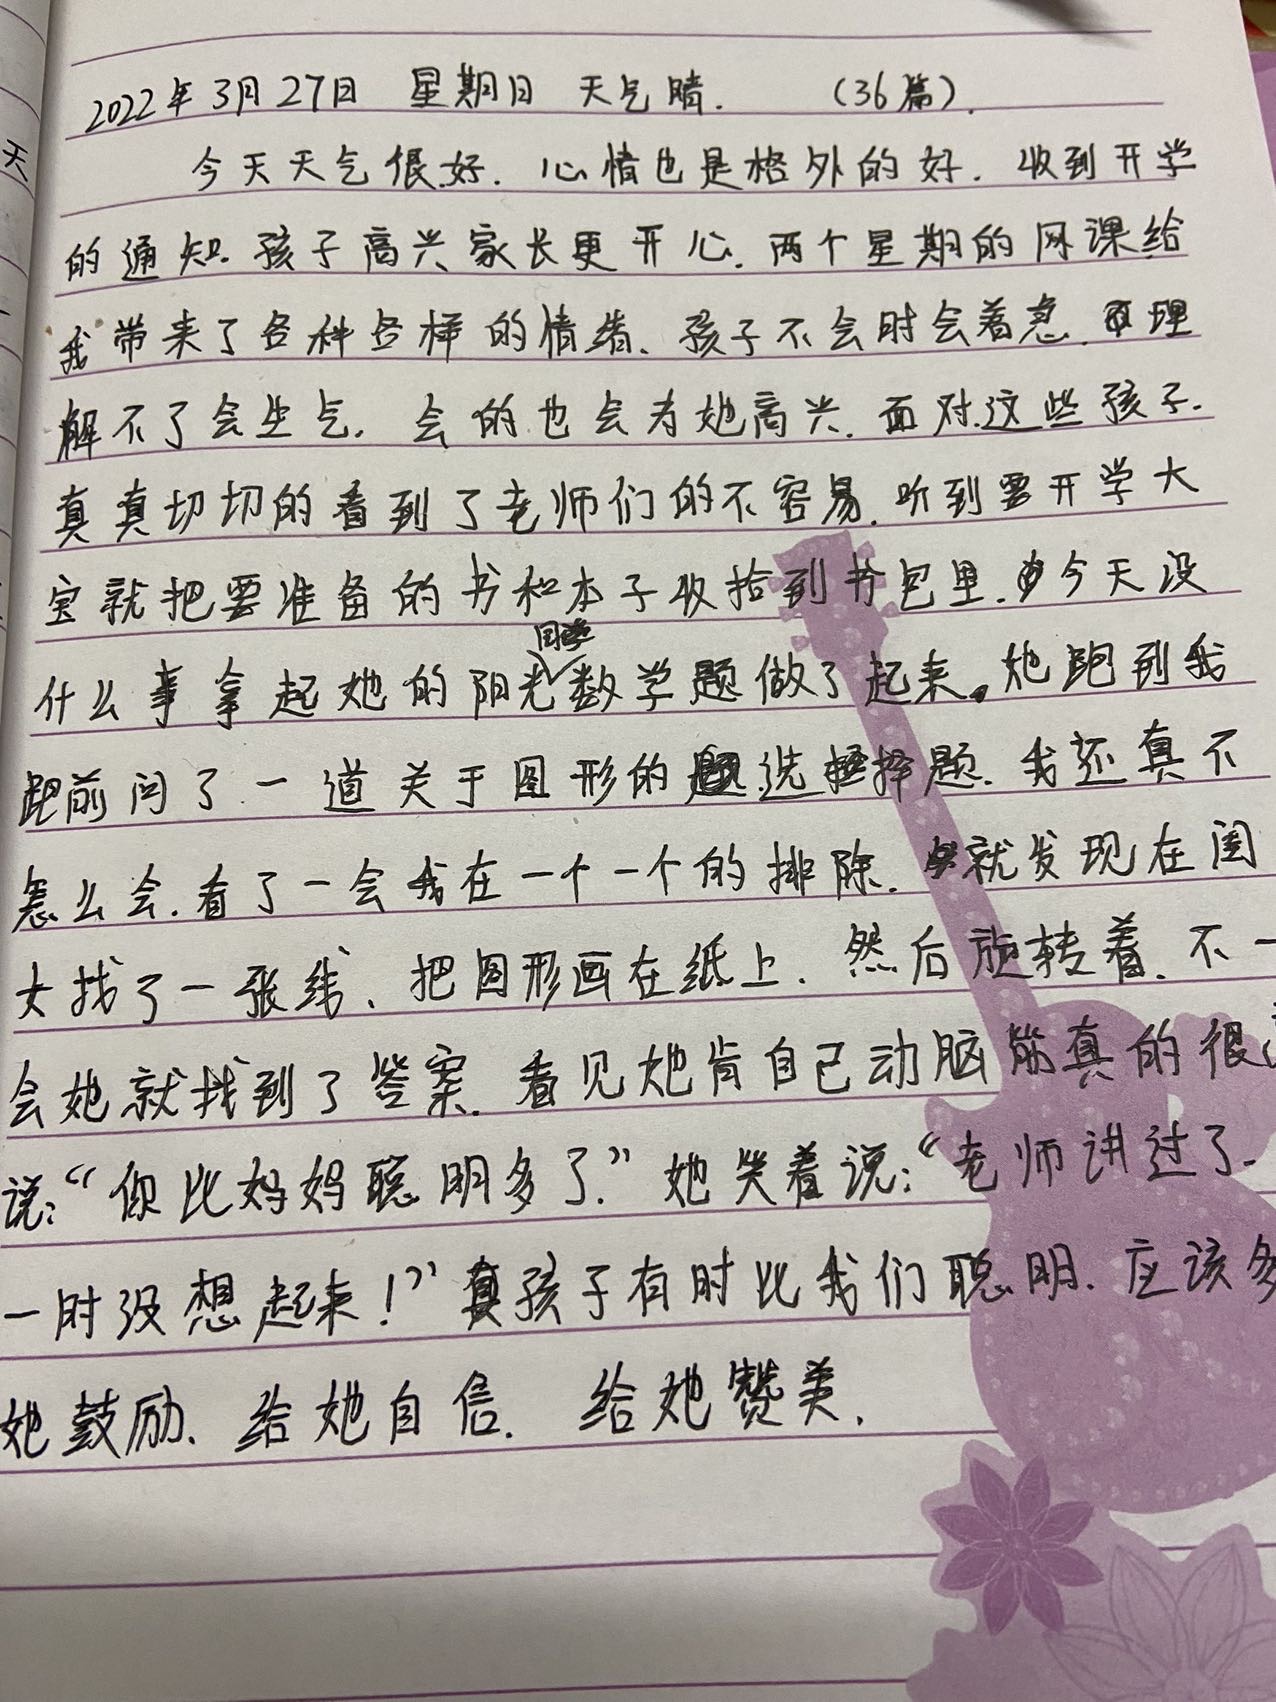 2022年3月27日 星期日 天气晴. (36篇).
今天天气很好. 心情也是格外的好. 收到开学
的通知. 孩子高兴家长更开心. 两个星期的网课给
我带来了各种各样的情绪、孩子不会时会着急. 理
解不了会生气. 会的也会为她高兴. 面对这些孩子.
真真切切的看到了老师们的不容易. 听到要开学大
宝就把要准备的书和本子收拾到书包里. 今天没
同学
什么事拿起她的阳光数学题做了起来。她跑到我
跑前问了一道关于图形的选择题. 我还真不
怎么会. 看了一会我在一个一个的排除. 就发现在闺
女找了一张纸、把图形画在纸上. 然后旋转着. 不一
会她就找到了答案. 看见她肯自己动脑筋真的很
说:“你比妈妈聪明多了.” 她笑着说:“老师讲过了.
一时没想起来!” 真孩子有时比我们聪明. 应该多
她鼓励、给她自信. 给她赞美.